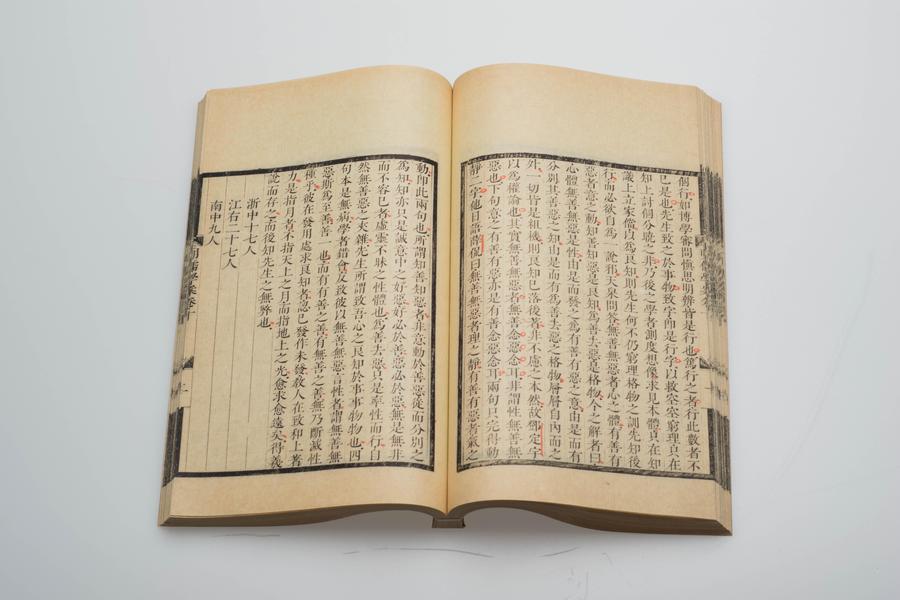 個于如博學審問愼思明辨皆是行也篤行之者行此數者不
已是也先生致之於事物致字卽是行字以救空空窮理只在
知上討個分曉之非乃後之學者測度想像求見本體只在知
識上立家儅以爲良知則先生何不仍窮理格物之訓先知後
行而必欲自爲一說邪天泉問答無善無惡者心之體有善有
惡者意之動知善知惡是良知爲善去惡是格物今之解者曰
心體無善無惡是性由是而發之爲有善有惡之意由是而有
分別其善惡之知由是而有爲善去惡之格物層層自內而之
外一切皆是粗機則良知已落後著非不慮之本然故鄧定宇
以爲權論也其實無善無惡者無善念惡念耳非謂性無善無
惡也下句意之有善有惡亦是有善念惡念耳兩句只完得動
靜二字他日語薛侃曰無善無惡者理之靜有善有惡者氣之
動卽此兩句也所謂知善知惡者非意動於善惡從而分別之
爲知知亦只是誠意中之好惡好必於善惡必於惡無是無非
而不容已者虛靈不昧之性體也爲善去惡只是率性而行自
然無善惡之夾雜先生所謂致吾心之良知於事事物物也四
句本是無病學者錯會反致彼以無善無惡言性者謂無善無
惡斯爲至善善一也而有有善之善有無善之善無乃斷滅性
種乎彼在發用處求良知者認已發作未發敎人在致和上著
力是指月者不指天上之月而指地上之光愈求愈遠矣得羲
說而存之而後知先生之無弊也
浙中十七人
江右二十七人
南中九人